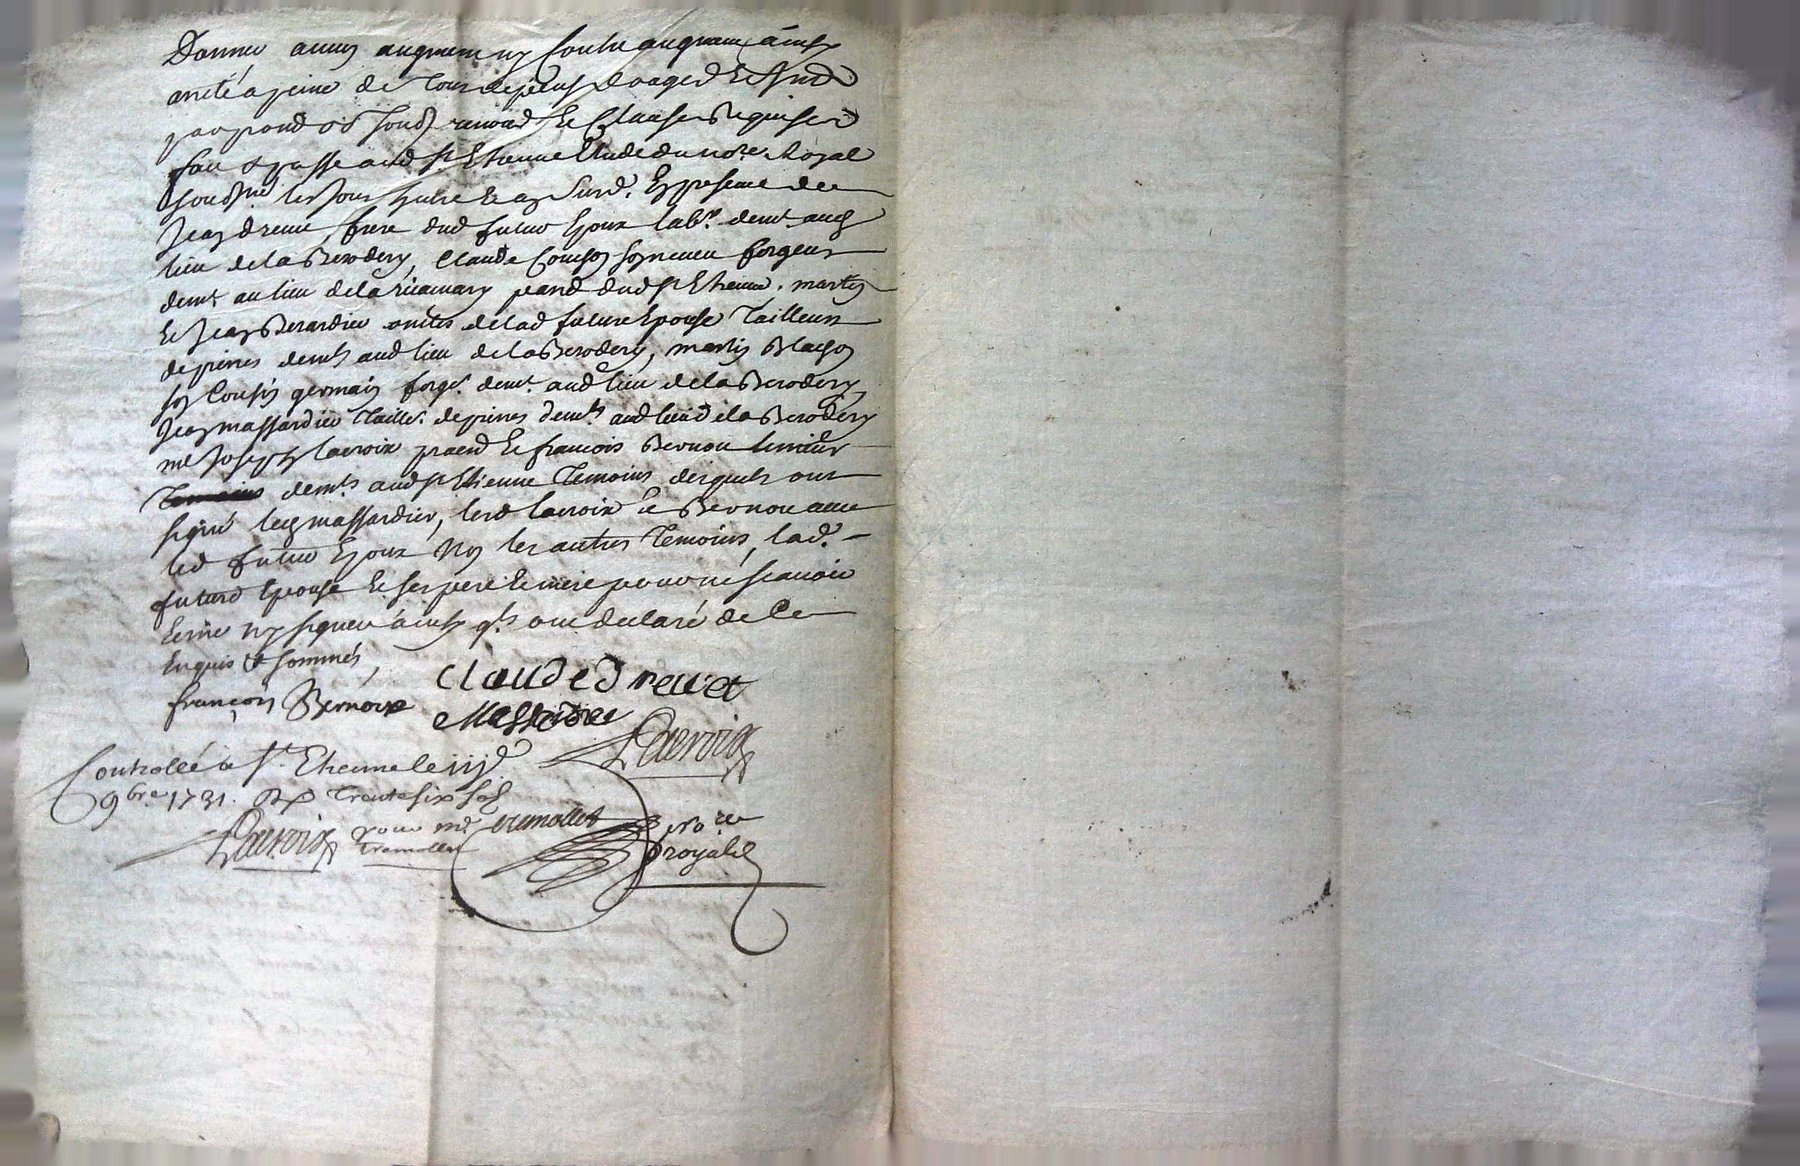 Donner aucun augment ny contre augment ainsy
arreté a peine de tous depens domages &
par pond od soubz renond & Clauses Requises
fait & passe aud St Etienne Etude du nore Royal
soubné les jour susd. En presence de
Jean dreuet frere dud futur Epoux labr. demt aud
lieu de la Berodery, Claude forgeur
demt au lieu de la ricamary parred dud St Etienne. martin
& Jean Berardier oncles de lad future Epouse Tailleurs
de pierres demts aud lieu de la Berodery, martin Blachon
son Cousin germain forgr. demt. aud lieu de la Berodery
Jean massardier Taillr. de pierres demt. aud lieu de la Berodery
me Joseph lacroix pracd & francois Bernou
demts. aud St Etienne Temoins desquels ont
signé led massardier, led lacroix & Bernou avec
led futur Epoux Non les autres Temoins, lad.
future Epouse & ses pere & mere pour ne scavoir
Ecrire ny signer ainsy qls ont declaré de Ce
Enquis & sommés
Claude dreuet
francois Bernou
Massardier
Lacroix
Controllé a St. Etienne le
9bre 1731. Rx Trente six sols
Lacroix
pour mr tremollet
tremollet
nore
royal